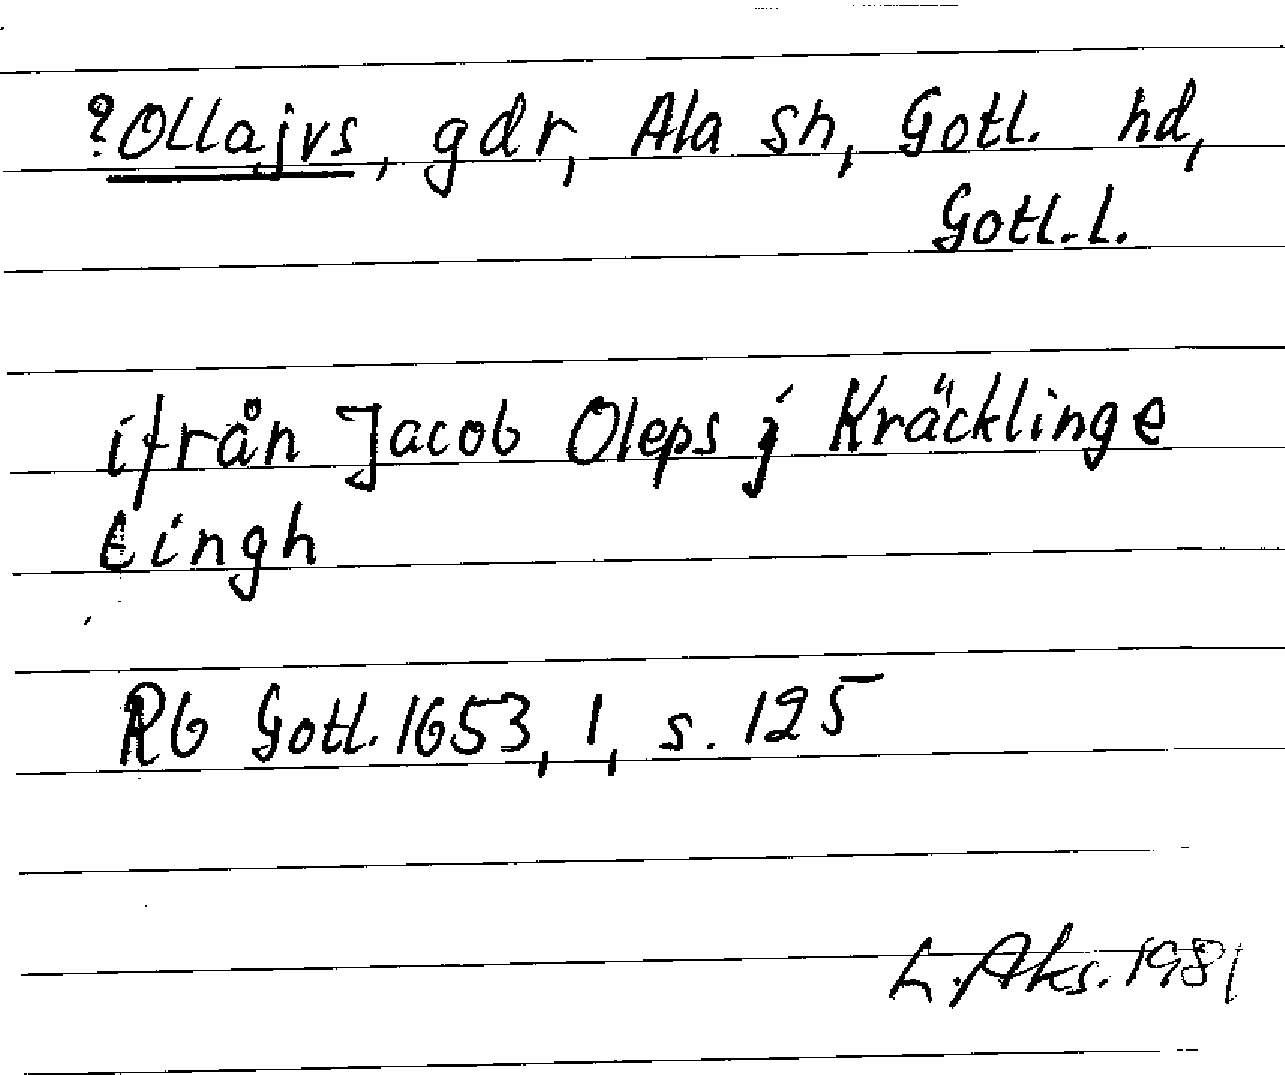 ?Ollajvs, gdr, Ala sn, Gotl. hd,
Gotl.l.
ifrån Jacob Oleps j Kräcklinge
tingh
Rb Gotl. 1653, 1, s. 125
L. Aks. 1981